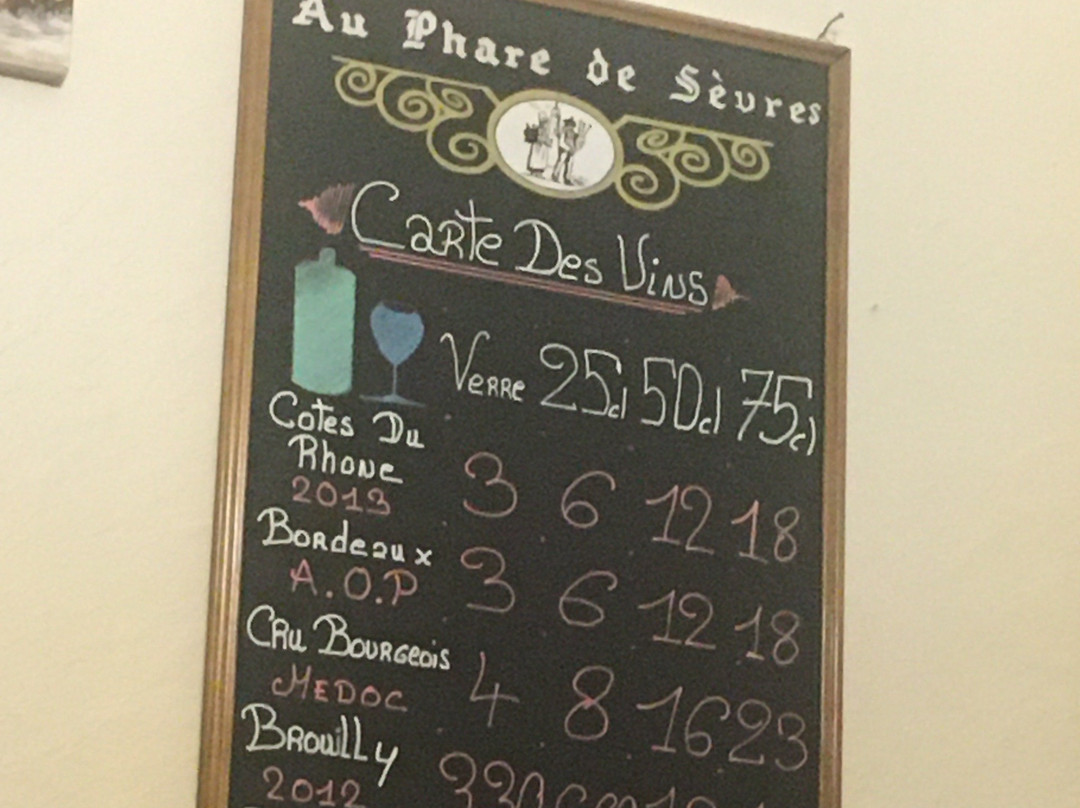 Au Phare de Sèvres
Carte Des Vins
Verre 25cl 50cl 75cl
Cotes Du
Rhone 3 6 12 18
2013
Bordeaux 3 6 12 18
A.O.P
Cru Bourgeois 4 8 16 23
Medoc
Brouilly
2012